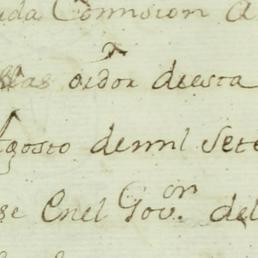 ida Comision A
oidor deesta
Agosto demil Sete
se Enel Gov.on del